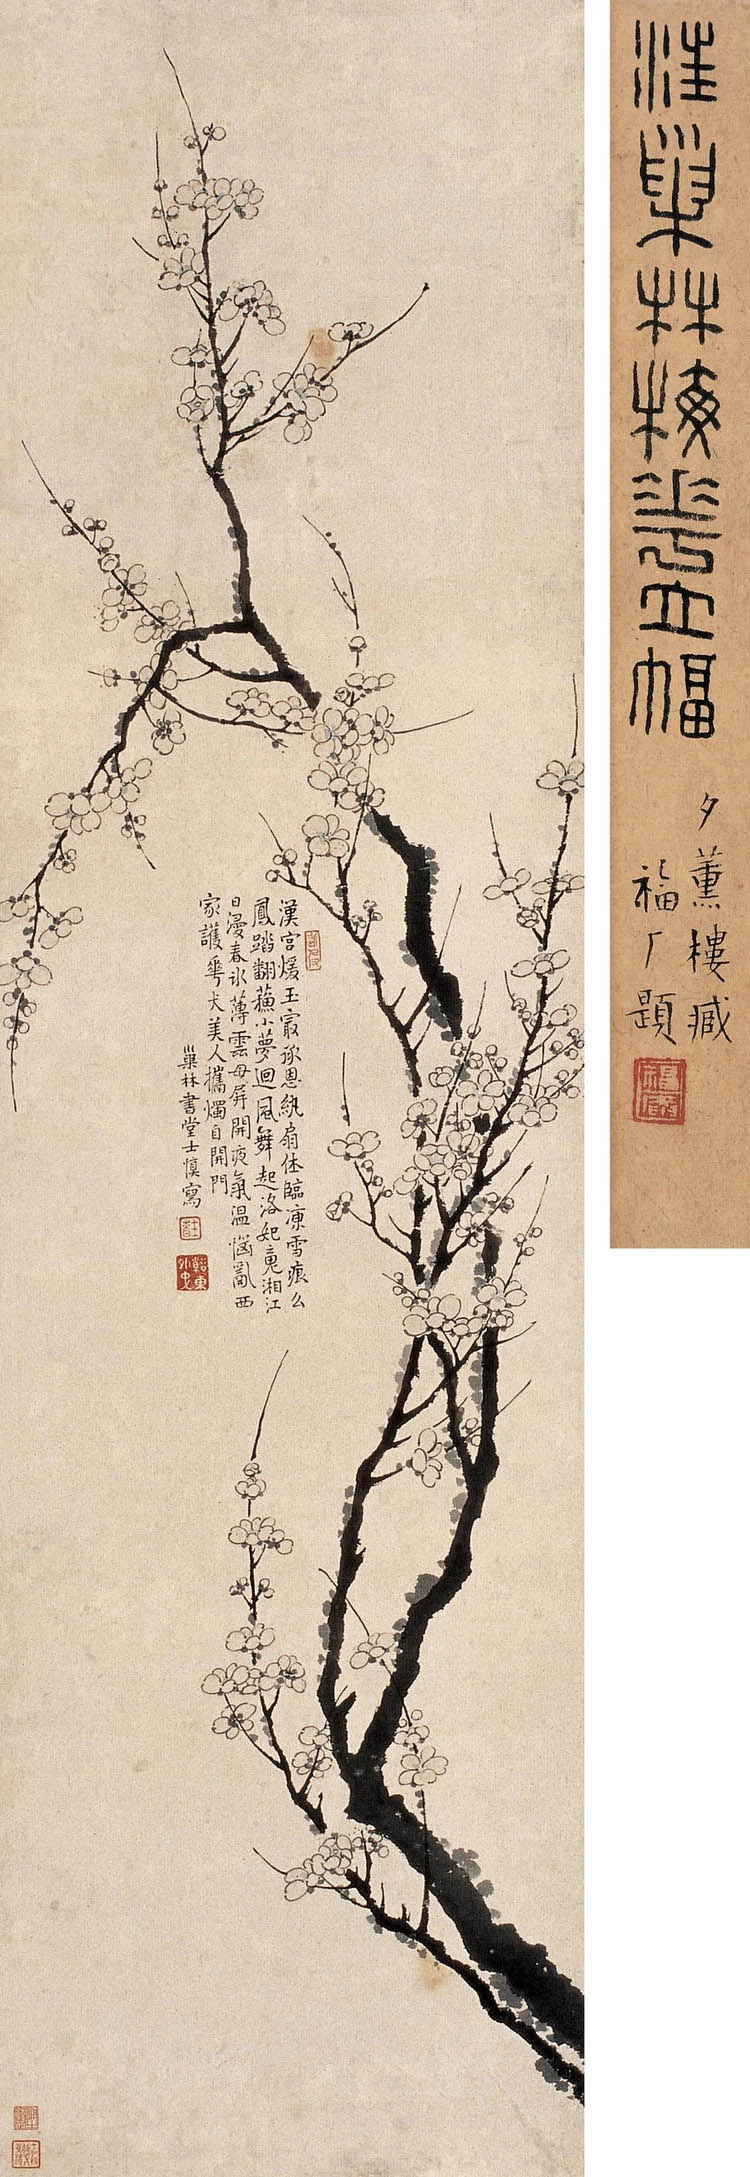 汪巢林梅華立幅
夕薰樓臧
福厂題
漢宮煖玉冣承恩紈扇休臨凍雪痕么
鳳踏翻蘓小夢迴風舞起洛妃魂湘江
日漫春冰薄雲母屏開夜氣溫惱亂西
家護華犬美人攜燭自開門
巢林書堂士慎寫